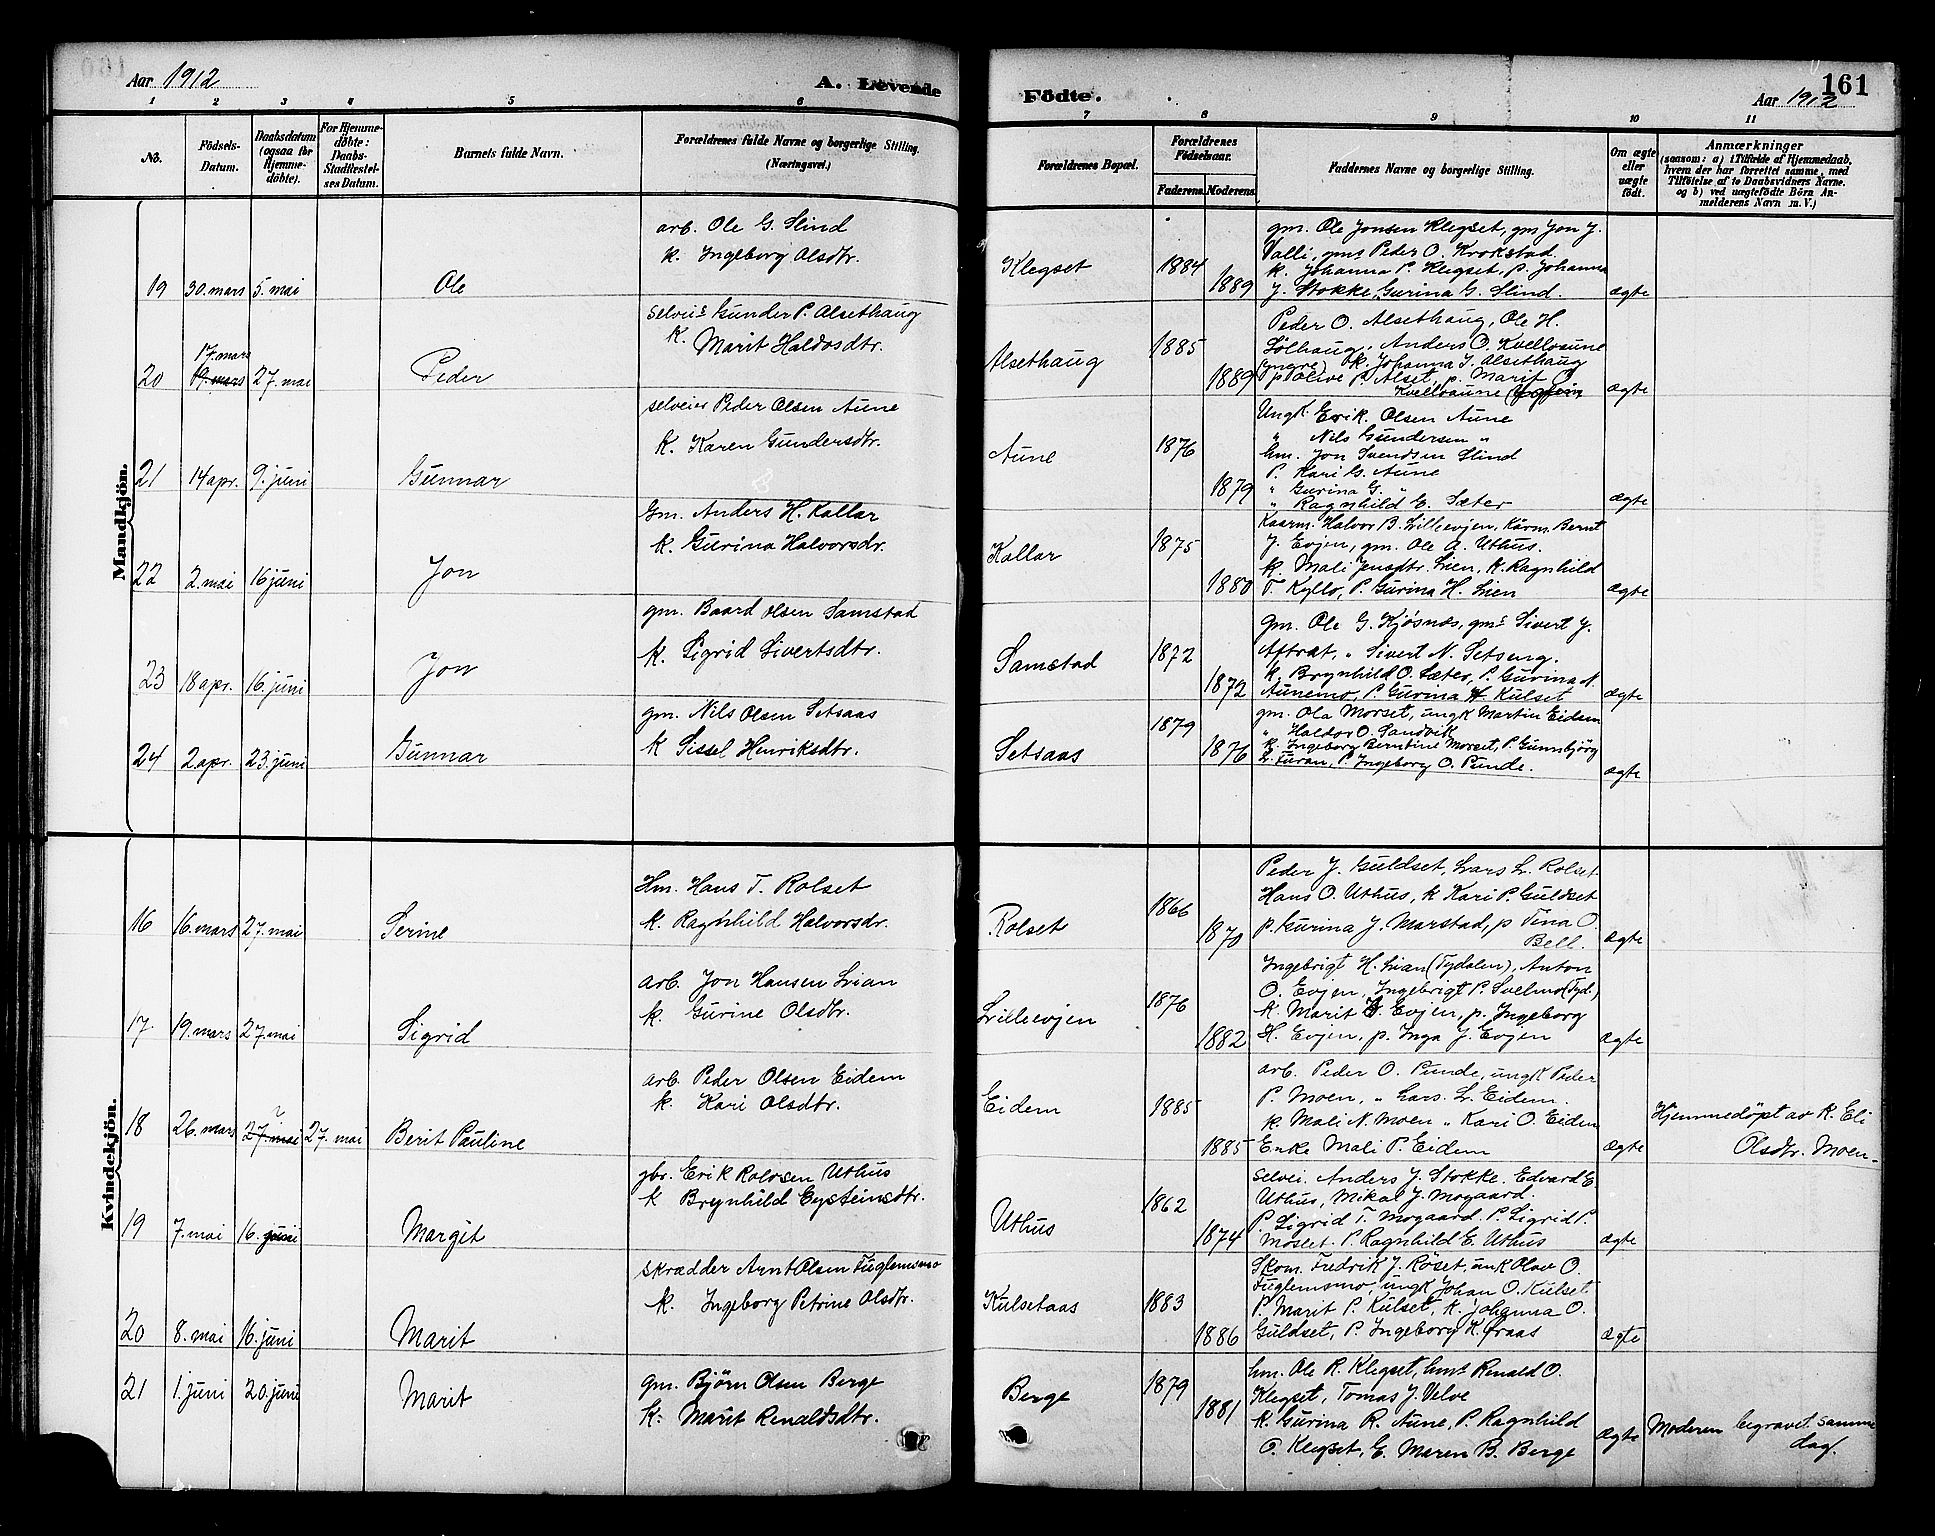 Aar 1912
A. Levende
Födte.
161
Aar 1912
1 2 3 4 5 6 7 8 9 10 11
No.
Födsels-Datum.
Daabsdatum (ogsaa for Hjemmedöbte).
For Hjemmedöbte: Daabs-Stadfæstelses Datum.
Barnets fulde Navn.
Forældrenes fulde Navne og borgerlige Stilling.
(Næringsvei.)
Forældrenes Bopæl.
Forældrenes Födselsaar.
Faderens. Moderens.
Faddernes Navne og borgerlige Stilling.
Om ægte eller uægte födt.
Anmærkninger
(saasom: a) i Tilfælde af Hjemmedaab, hvem der har forrettet samme, med Tilföielse af to Daabsvidners Navne. og b) ved uægtefödte Börn Anmelderens Navn m. V.)
Mandkjön.
19 30. mars 5. mai Ole
arb. Ole G. Slind
k. Ingeborg Olsdtr.
Klegset 1884 1889
gm. Ole Jonsen Klegset, gm Jon J.
Valli, gms Peder O. Krokstad.
k. Johanna P. Klegset, p. Johanna
J. Stokke, Gurina G. Slind. ægte
17. mars
20 19. mars 27. mai Peder
selveier Gunder P. Alsethaug
k. Marit Haldosdtr.
Alsethaug 1885 1889
Peder O. Alsethaug, Ole H.
Sölhaug, Anders O. Kvellosune
(yngre) k. Johanna J. Alsethaug
p Olive P. Alset, p. Marit O.
Kvelloaune ægte
21 14 apr. 9. juni Gunnar
selveier Peder Olsen Aune
k. Karen Gundersdtr.
Aune 1876 1879
Ungk. Erik Olsen Aune
" Nils Gundersen "
hm. Jon Svendsen Slind
P. Kari G. Aune
" Gurina G. "
" Ragnhild E. Sæter ægte
22 2. mai 16 juni Jon
Gm. Anders H. Kallar
k. Gurina Halvorsdr.
Kallar 1875 1880
Kaarm. Halvor B. Lillievjen, Kårm. Bernt
J. Evjen, gm. Ole A. Uthus.
k. Mali Jensdtr. Lien, k. Ragnhild
T. Kyllo, P. Gurina H. Lien ægte
23 18 apr. 16. juni Jon
gm. Baard Olsen Samstad
k. Sigrid Sivertsdtr.
Samstad 1872 1872
Gm. Ole G. Kjösnæs, gms Sivert J.
Aftret, " Sivert N. Setseng.
k. Brynhild O. Sæter, P. Gurina N.
Aunemo, P. Gurina H. Kulset ægte
24 2. apr. 23. juni Gunnar
gm. Nils Olsen Setsaas
k Sissel Henriksdtr.
Setsaas 1879 1876
gm. Ola Morset, ungk Martin Eidem
" Haldor O. Sandvik
k. Ingeborg Berntine Morset, P. Gunnbjörg
L. Furan, P. Ingeborg O. Punde. ægte
Kvindekjön.
16 16. mars 27. mai Serine
Hm. Hans T. Rolset
k. Ragnhild Halvorsdr.
Rolset 1866 1870
Peder J. Guldset, Lars L. Rolset.
Hans O. Uthus, k Kari P. Guldset
p. Gurina J. Marstad, p Tina O.
Bell. ægte
17. 19. mars 27. mai Sigrid
arb. Jon Hansen Lian
k. Gurine Olsdtr.
Lillievjen 1876 1882
Ingebrigt H. Lian (Tydalen), Anton
O. Evjen, Ingebrigt P. Svelmo (Tyd.)
k. Marit J. Evjen, p. Ingeborg
H. Evjen, p. Inga J. Evjen ægte
18 26. mars 27. mai ? 27. mai Berit Pauline
arb. Peder Olsen Eidem
k. Kari Olsdtr.
Eidem 1885 1885
arb. Peder O. Punde, ungk Peder
P. Moen, " Lars L. Eidem.
k. Mali N. Moen " Kari O. Eidem
Enke Mali P. Eidem ægte
Hjemmedöpt av k. Eli
Olsdtr. Moen.
19 7. mai 16. juni Margit
gbr. Erik Rolvsen Uthus
k Brynhild Eysteinsdtr.
Uthus 1862 1874
Selvei. Anders J. Stokke. Edvard E.
Uthus, Mikal J. Mogaard.
P. Sigrid T. Mogaard. P. Sigrid P.
Moslet. P. Ragnhild E. Uthus ægte
20 8. mai 16. juni Marit
skrædder Arnt Olsen Fuglemsmo
k. Ingeborg Petrine Olsdtr.
Kulsetaas 1883 1886
Skom. Fredrik J. Röset, unk Olav O.
Fuglemsmo, ungk Johan O. Kulset
P. Marit P. Kulset, k. Johanna O.
Guldset, P. Ingeborg K. Graas ægte
21 1. juni 20. juni Marit
gm. Björn Olsen Berge
k. Marit Renaldsdtr.
Berge 1879 1881
hm. Ole R. Klegset, hms Renald O.
Klegset, Tomas J. Velve
k. Gurina R. Aune, P. Ragnhild
O. Klegset, E. Maren B. Berge ægte
Moderen begravet samme
dag.